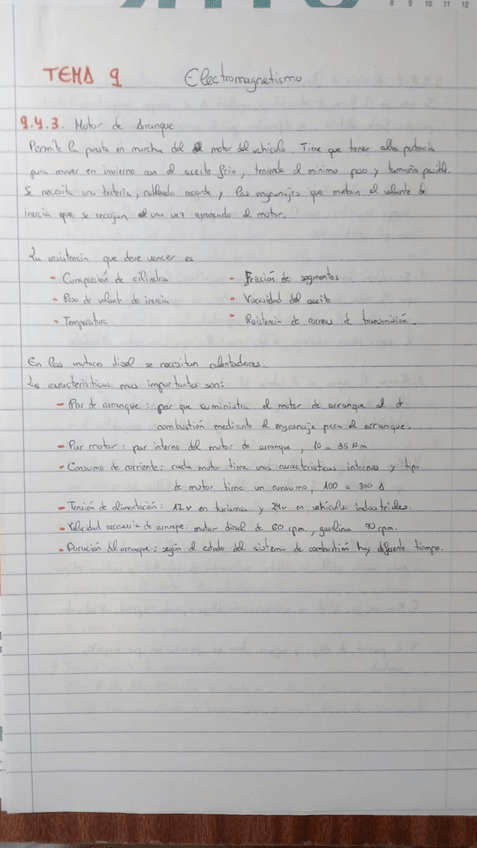 8 9 10 11 12
TEMA 9 Electromagnetismo
9.4.3. Motor de Arranque
Permite la puesta en marcha del motor del vehículo. Tiene que tener alta potencia
para mover en invierno con el aceite frio, teniendo el mínimo peso y tamaño posible.
Se necesita una batería, cableado acorde y los engranajes que metan el volante de
inercia que se recojan una vez arrancado el motor.
La resistencia que debe vencer es
- Compresión de cilindros - Fricción de segmentos
- Peso de volante de inercia - Viscosidad del aceite
- Temperatura - Resistencia de correas de transmisión.
En los motores diesel se necesitan calentadores.
Las características mas importantes son:
- Par de arranque: par que suministra el motor de arranque al de
combustión mediante el engranaje para el arranque.
- Par motor: par interno del motor de arranque, 10 a 35 Nm
- Consumo de corriente: cada motor tiene unas características internas y tipo
de motor tiene un consumo, 100 a 300 A
- Tensión de alimentación: 12v en turismos y 24v en vehículos industriales.
- Velocidad de arranque: motor diesel de 60 rpm, gasolina 90 rpm.
- Duración del arranque: según el estado del sistema de combustión hay diferente tiempo.